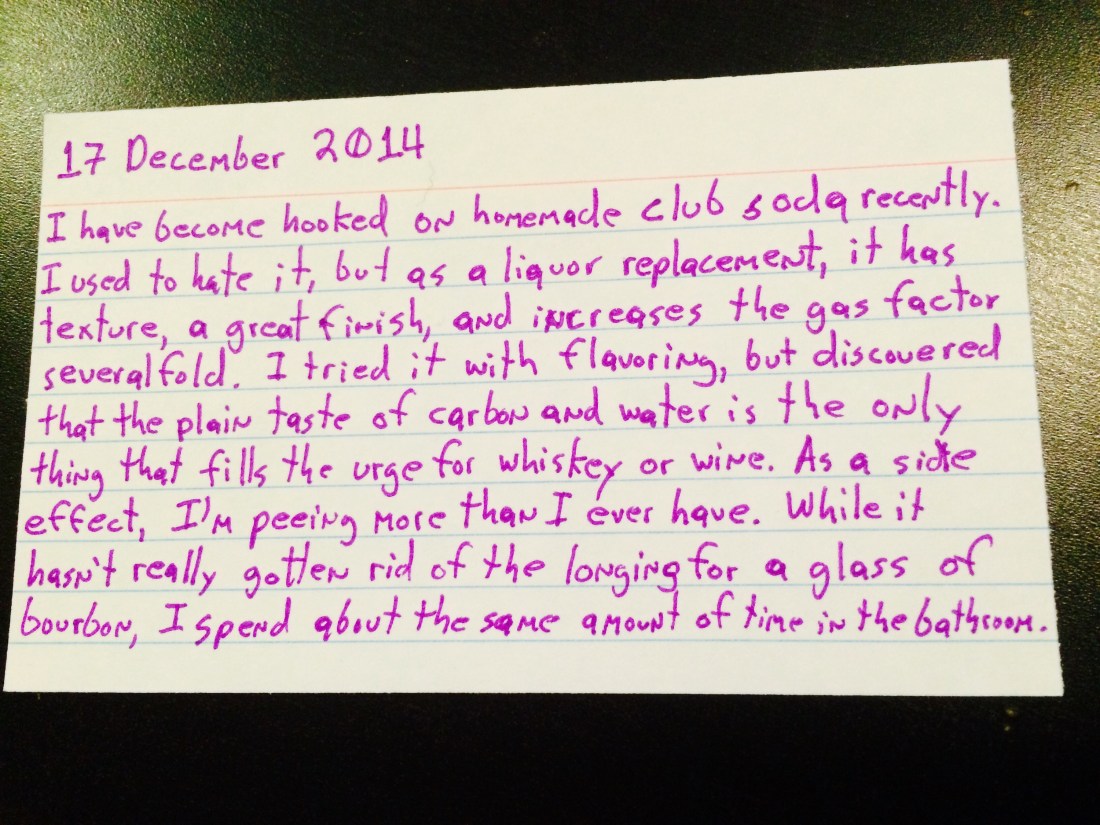 17 December 2014
I have become hooked on homemade club soda recently.
I used to hate it, but as a liquor replacement, it has
texture, a great finish, and increases the gas factor
several fold. I tried it with flavoring, but discovered
that the plain taste of carbon and water is the only
thing that fills the urge for whiskey or wine. As a side
effect, I'm peeing more than I ever have. While it
hasn't really gotten rid of the longing for a glass of
bourbon, I spend about the same amount of time in the bathroom.